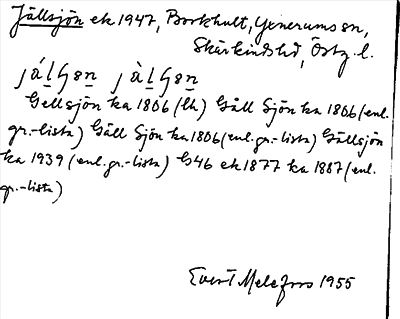 Jällsjön ek 1947, Borkhult, Yxnerums sn,
Skärkinds hd, Östg. l.
Gellsjön ka 1806 (lh) Gäll Sjön ka 1806 (enl.
gr.-lista) Gäll Sjön ka 1806 (enl. gr.-lista) Gällsjön
ka 1939 (enl. gr.-lista) G46 ek 1877 ka 1887 (enl.
gr.-lista)
Evert Melefors 1955